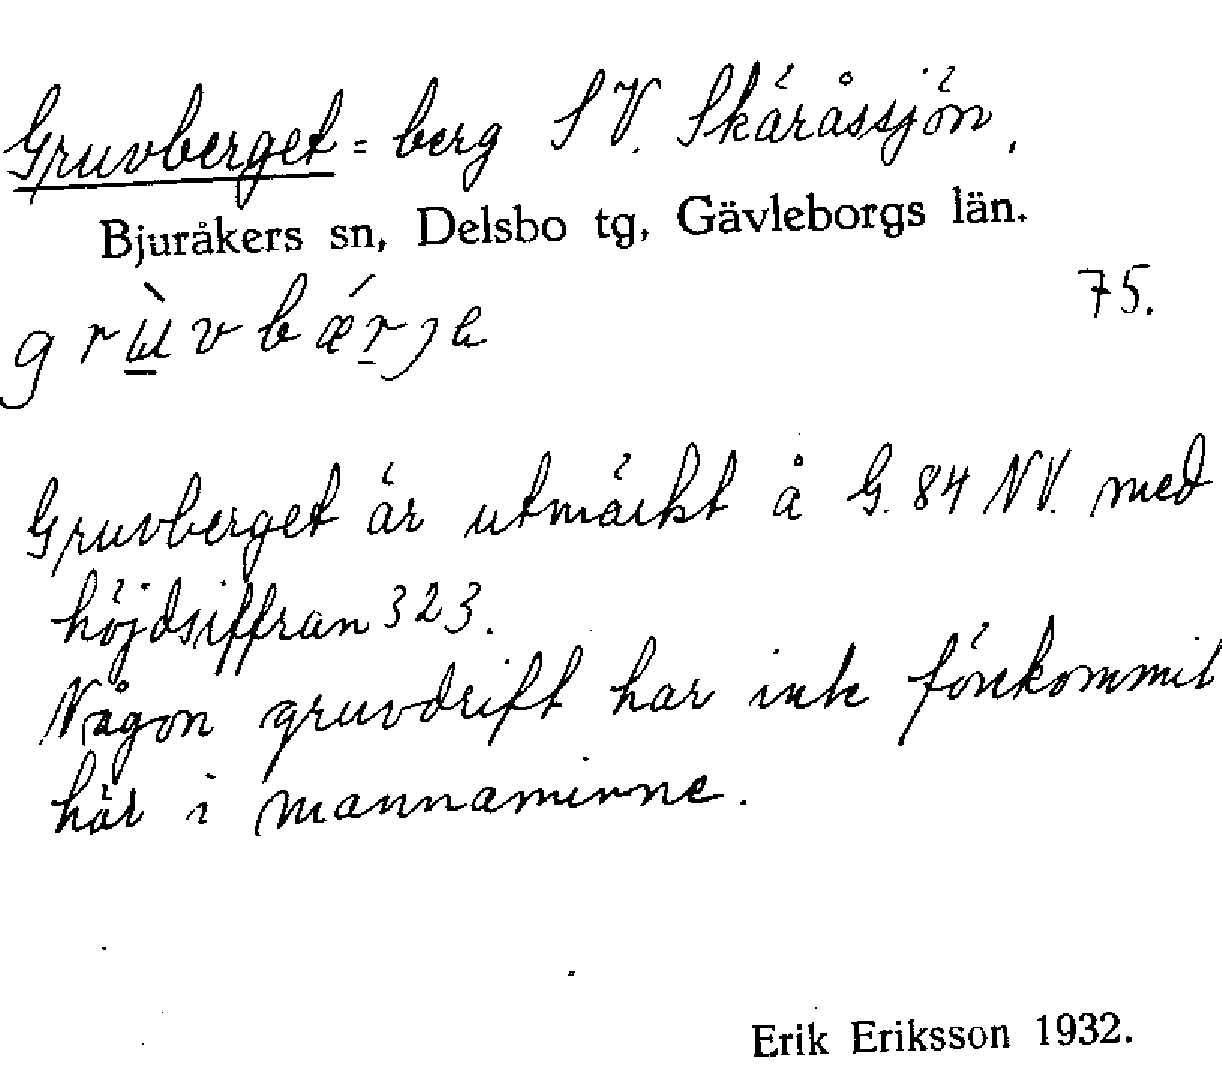 Gruvberget = berg SV. Skäråssjön.
Bjuråkers sn, Delsbo tg, Gävleborgs län.
75.
grùvbǽrje
Gruvberget är utmärkt å G. 84 NV. med
höjdsiffran 323.
Någon gruvdrift har inte förekommit
här i mannaminne.
Erik Eriksson 1932.